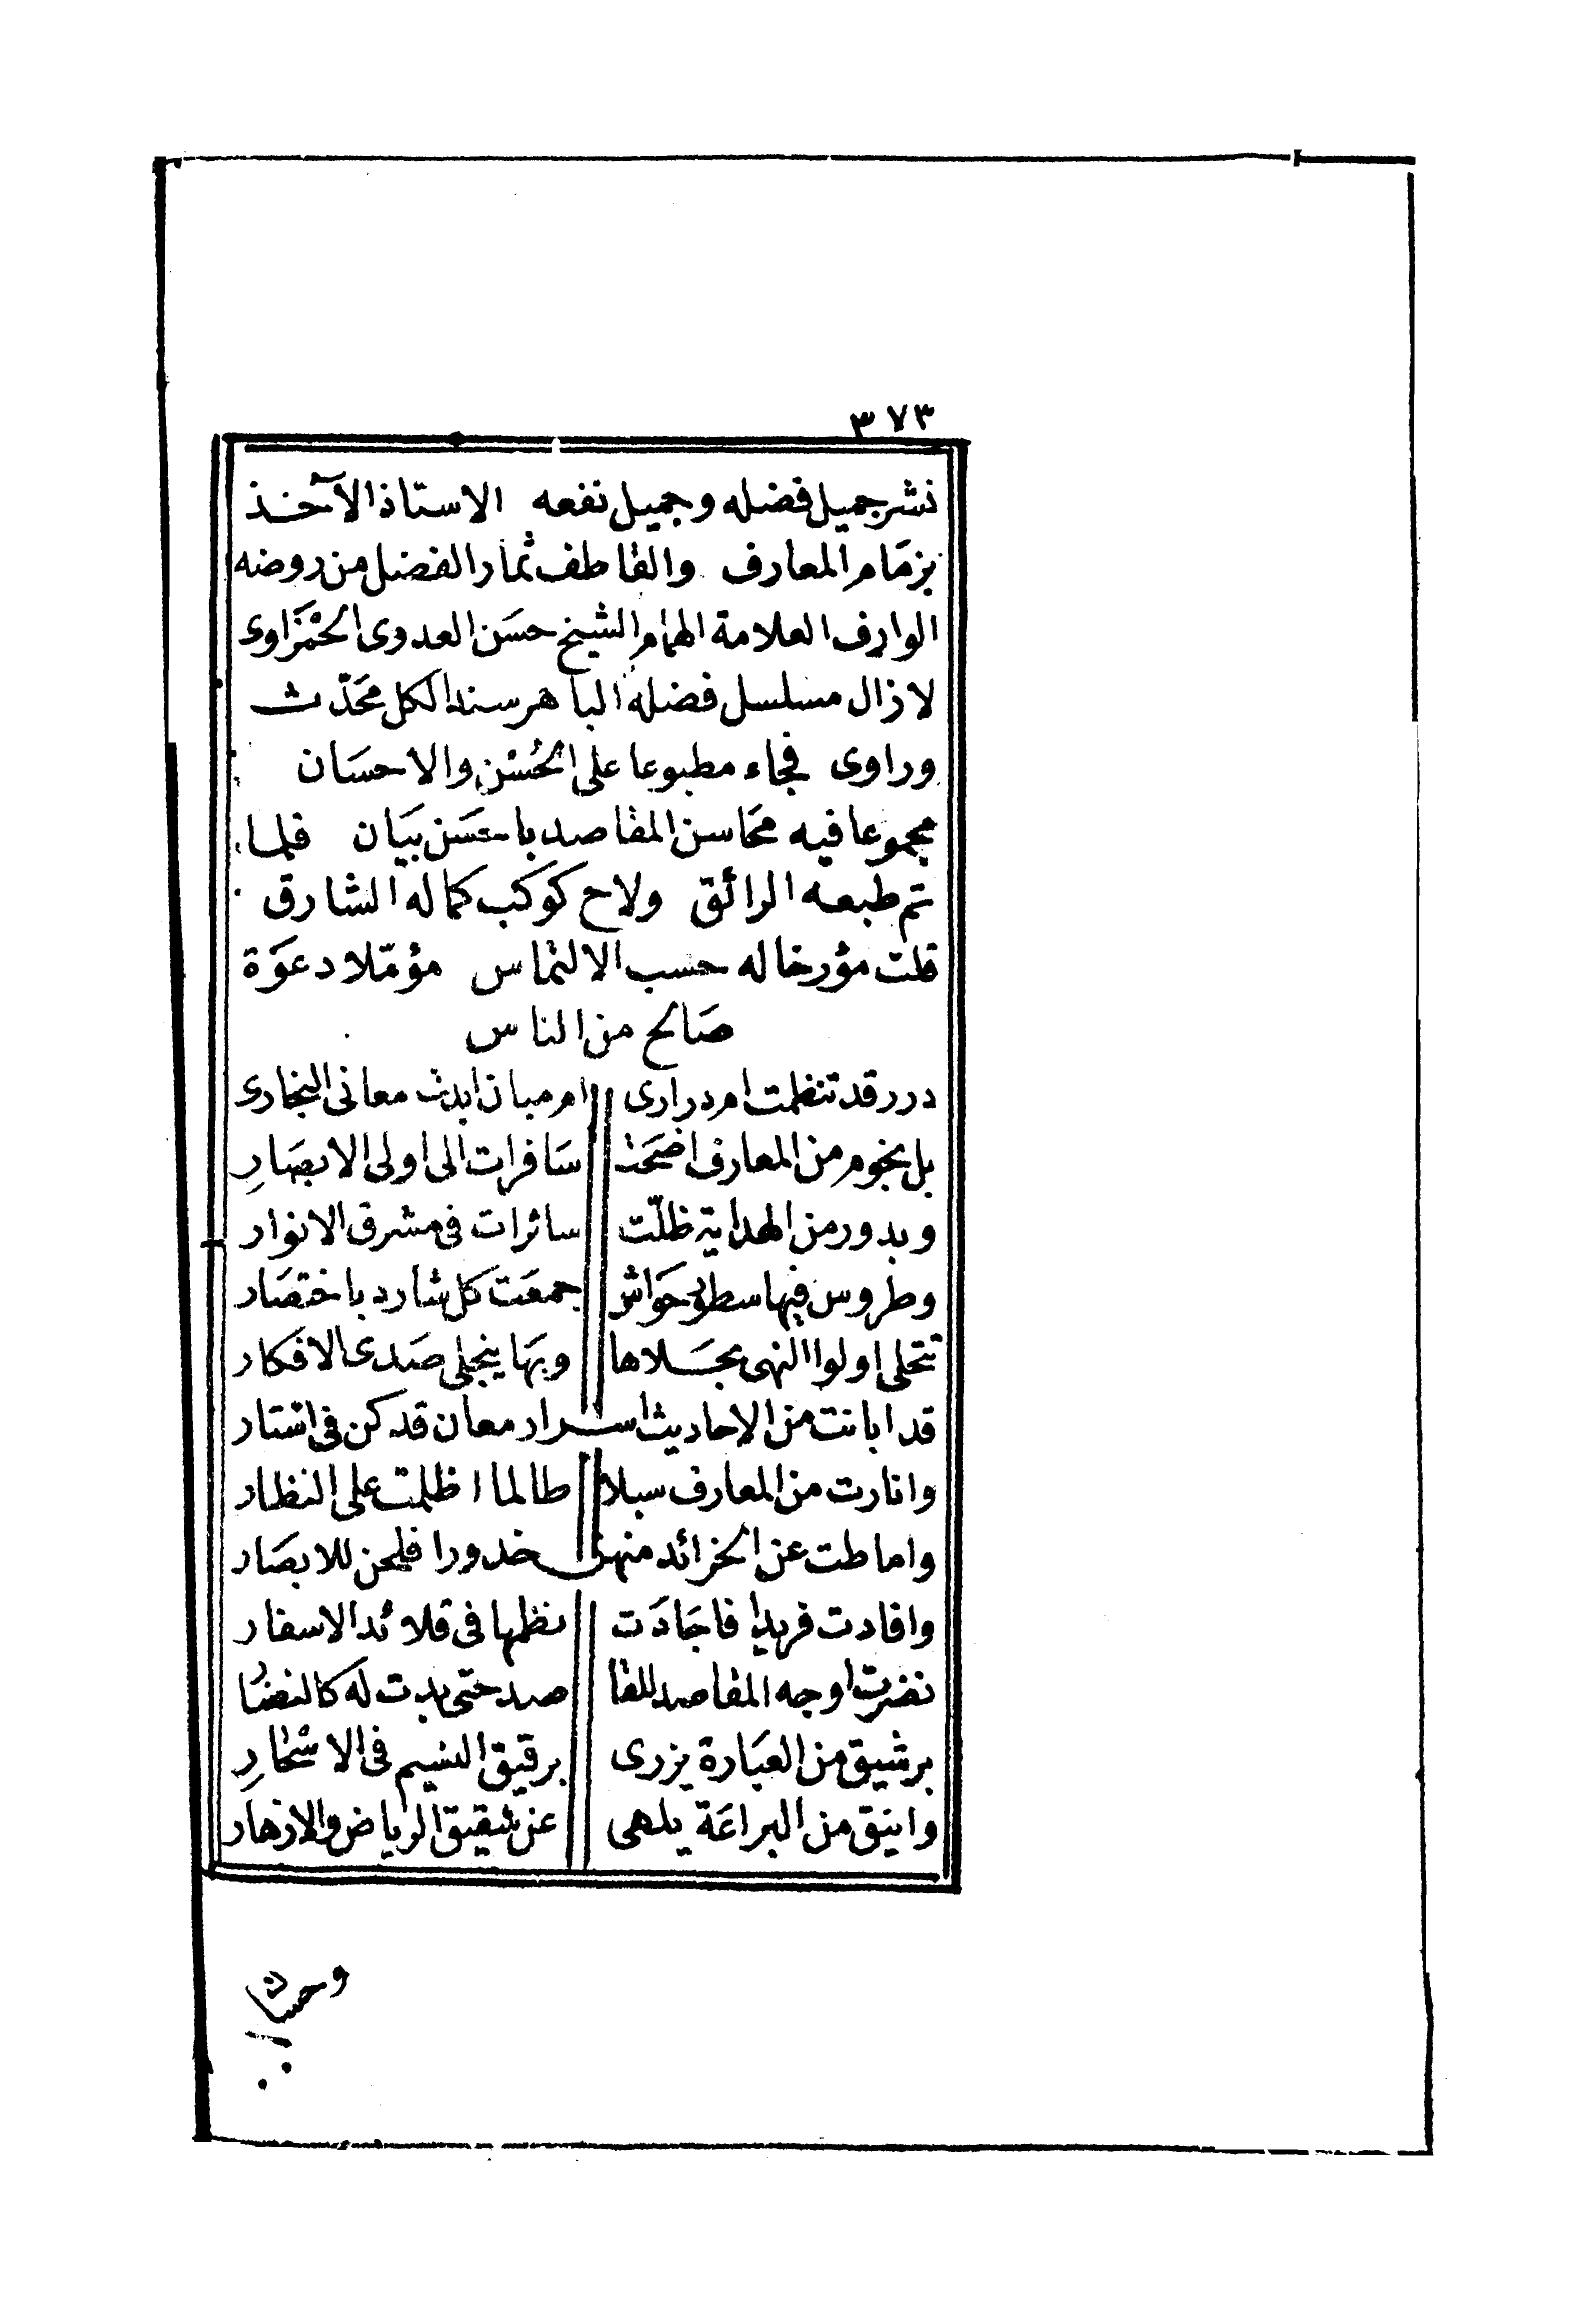 ٣٧٣
نشر جميل فضله وجميل نفعه الاستاذ الآخذ
بزمَام المعارف والقاطف ثمار الفضل من روضه
الوارف العلامة الهمام الشيخ حسَن العدوى الحَمْزَاوى
لازال مسلسل فضله الباهر سندا لكل محَدّث
وراوى فجاء مطبوعا على الحُسْن والاحسَان
مجموعا فيه محَاسن المقاصد باحسَن بيَان فلما
تم طبعه الرائق ولاح كوكب كماله الشارق
قلت مؤرخا له حسب الالتماس مؤمّلا دعوَة
صَالح من الناس
درر قد تنظمت ام درارى ام مبان ابدت معانى البخارى
بل نجوم من المعارف اضحَت سَافرات الى اولى الابصَارِ
وبدور من الهداية ظلّت سائرات فى مشرق الانوار
وطروس فيها سطور حوَاش جمعَت كل شارد باختصَار
تتحلى اولوا النهى بحَلاها وبهَا ينجلى صَدى الافكار
قد ابانت من الاحاديث اسرار معان قد كن فى استتار
وانارت من المعارف سبلا طالما اظلمت على النظار
واماطت عن الخرائد منهن خدورا فلحن للابصَار
وافادت فريدا فاجَادَت نظمها فى قلائد الاسفار
نضرت اوجه المقاصد للقا صد حتى بدت له كالنضار
برشيق من العبَارة يزرى برقيق النسيم فى الاسْحَارِ
وانيق من البراعَة يلهى عن شقيق الرياض والازهار
وحسان